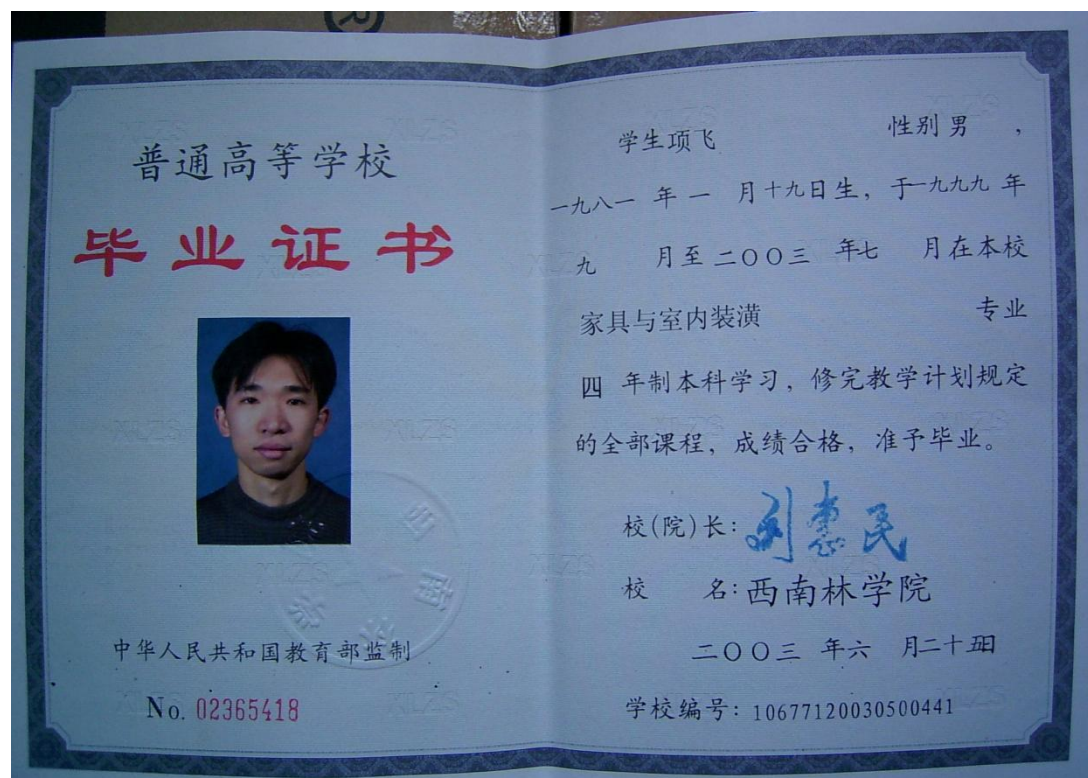 普通高等学校
毕业证书
中华人民共和国教育部监制
No. 02365418
学生项飞 性别 男 ，
一九八一 年 一 月十九日生，于一九九九 年
九 月至 二〇〇三 年七 月在本校
家具与室内装潢 专业
四 年制本科学习，修完教学计划规定
的全部课程，成绩合格，准予毕业。
校(院)长：刘惠民
校 名：西南林学院
二〇〇三 年六 月二十五日
学校编号：106771200305004​41